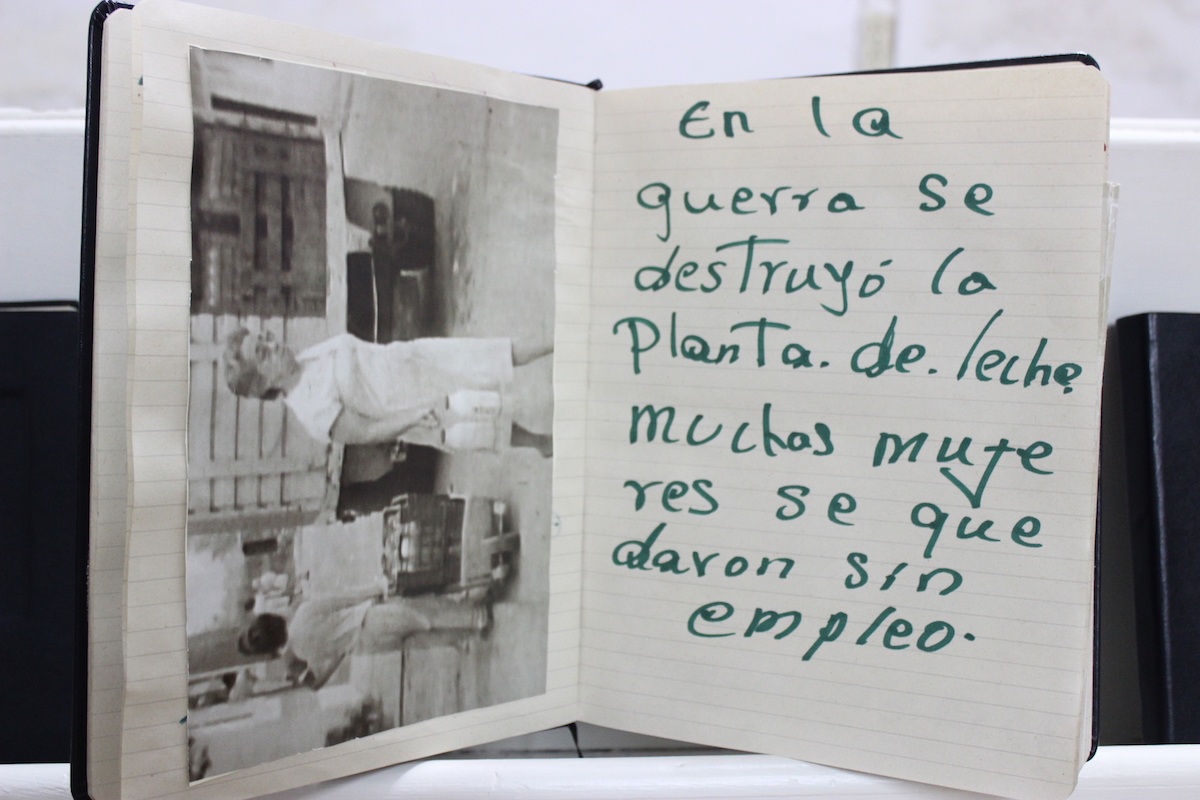 En la
guerra se
destruyó la
Planta. de. leche
muchas muje
res se que
daron sin
empleo.